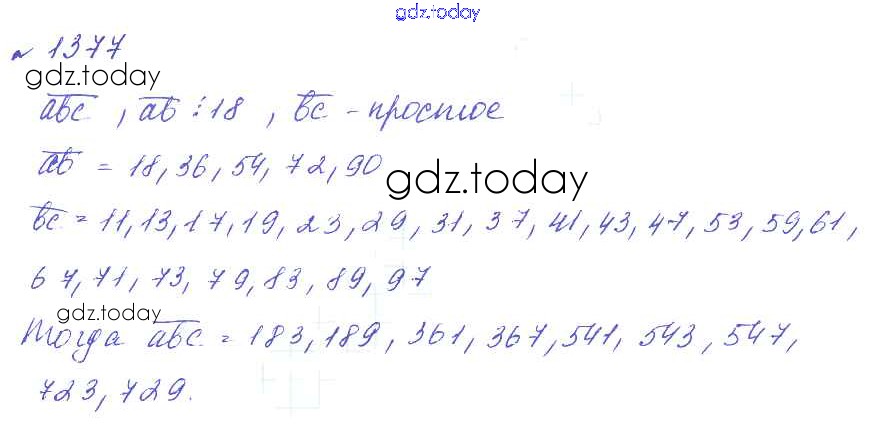 gdz.today
№ 1377
gdz.today
abc , ab ⋮ 18 , bc - простое
ab = 18, 36, 54, 72, 90
gdz.today
bc = 11, 13, 17, 19, 23, 29, 31, 37, 41, 43, 47, 53, 59, 61,
67, 71, 73, 79, 83, 89, 97
gdz.today
Тогда abc = 183, 189, 361, 367, 541, 543, 547,
723, 729.